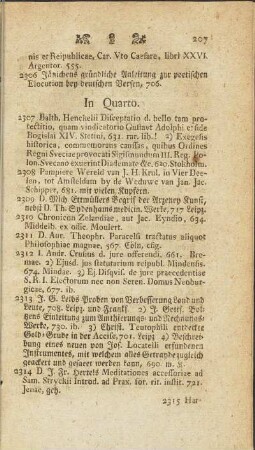 207
nis et Reipublicae, Car. Vto Caesare, libri XXVI.
Argentor. 555.
2306 Jänichens gründliche Anleitung zur poetischen
Elocution bey deutschen Versen, 706.
In Quarto.
2307 Balth. Henckelii Disceptatio d. bello tam
protectitio, quam vindicatorio Gustavi Adolphi c.
Bogislai XIV. Stetini, 631. rar. lib.! 2) Exegesis
historica, commemorans caussas, quibus Ordines
Regni Sveciae provocati Sigismundum III. Reg.
Svecano exuerint Diademate &c. 620. Stolholm.
2308 Pampiere Wereld van J. H. Krol, in Vier Dee-
len, tot Amsteldam by de Weduwe van Jan. Jac.
Schipper, 681. mit vielen Kupfern.
2309 D. Mich Ettmüllers Begrif der Arzeney Kunst,
nebst D. Th. Sydenhams medicin. Werke, 717 Leipz.
2310 Chronicon Zelandiae, aut. Jac. Eyndio, 634.
Middelb. ex offic. Moulert.
2311 D. Aur. Theophr. Paracelsi tractatus aliquot
Philosophiae magnae, 567. Cöln, csig.
2312 J. Andr. Crusius d. jure offerendi, 661. Bre-
mae. 2) Ejusd. jus statutarium reipubl. Mindensis.
674. Mindae. 3) Ej. Disqvis. de jure praecedentiae
S. R. I. Electorum nec non Seren. Domus Neobur-
gicae, 677. ib.
2313 J. G. Leibs Proben von Verbesserung Land und
Leute, 708. Leipz. und Frankf. 2) J. Gottf.
Einleitung zum Amthierungs- und Rechnungs-
Werke, 730. ib. 3) Christ. Teutophili entdeckte
Gold-Grube in der Accise, 701. Leipz. 4) Beschrei-
bung eines neuen von Jos. Locatelli erfundenen
Instrumentes, mit welchem alles Getrayde zugleich
geackert und gesaeet werden kann, 690 m. K.
2314 D. J. Fr. Hertels Meditationes accessoriae ad
Sam. Stryckii Introd. ad Prax. for. rit. instit. 721.
Jenae, geh.
2315 Har-